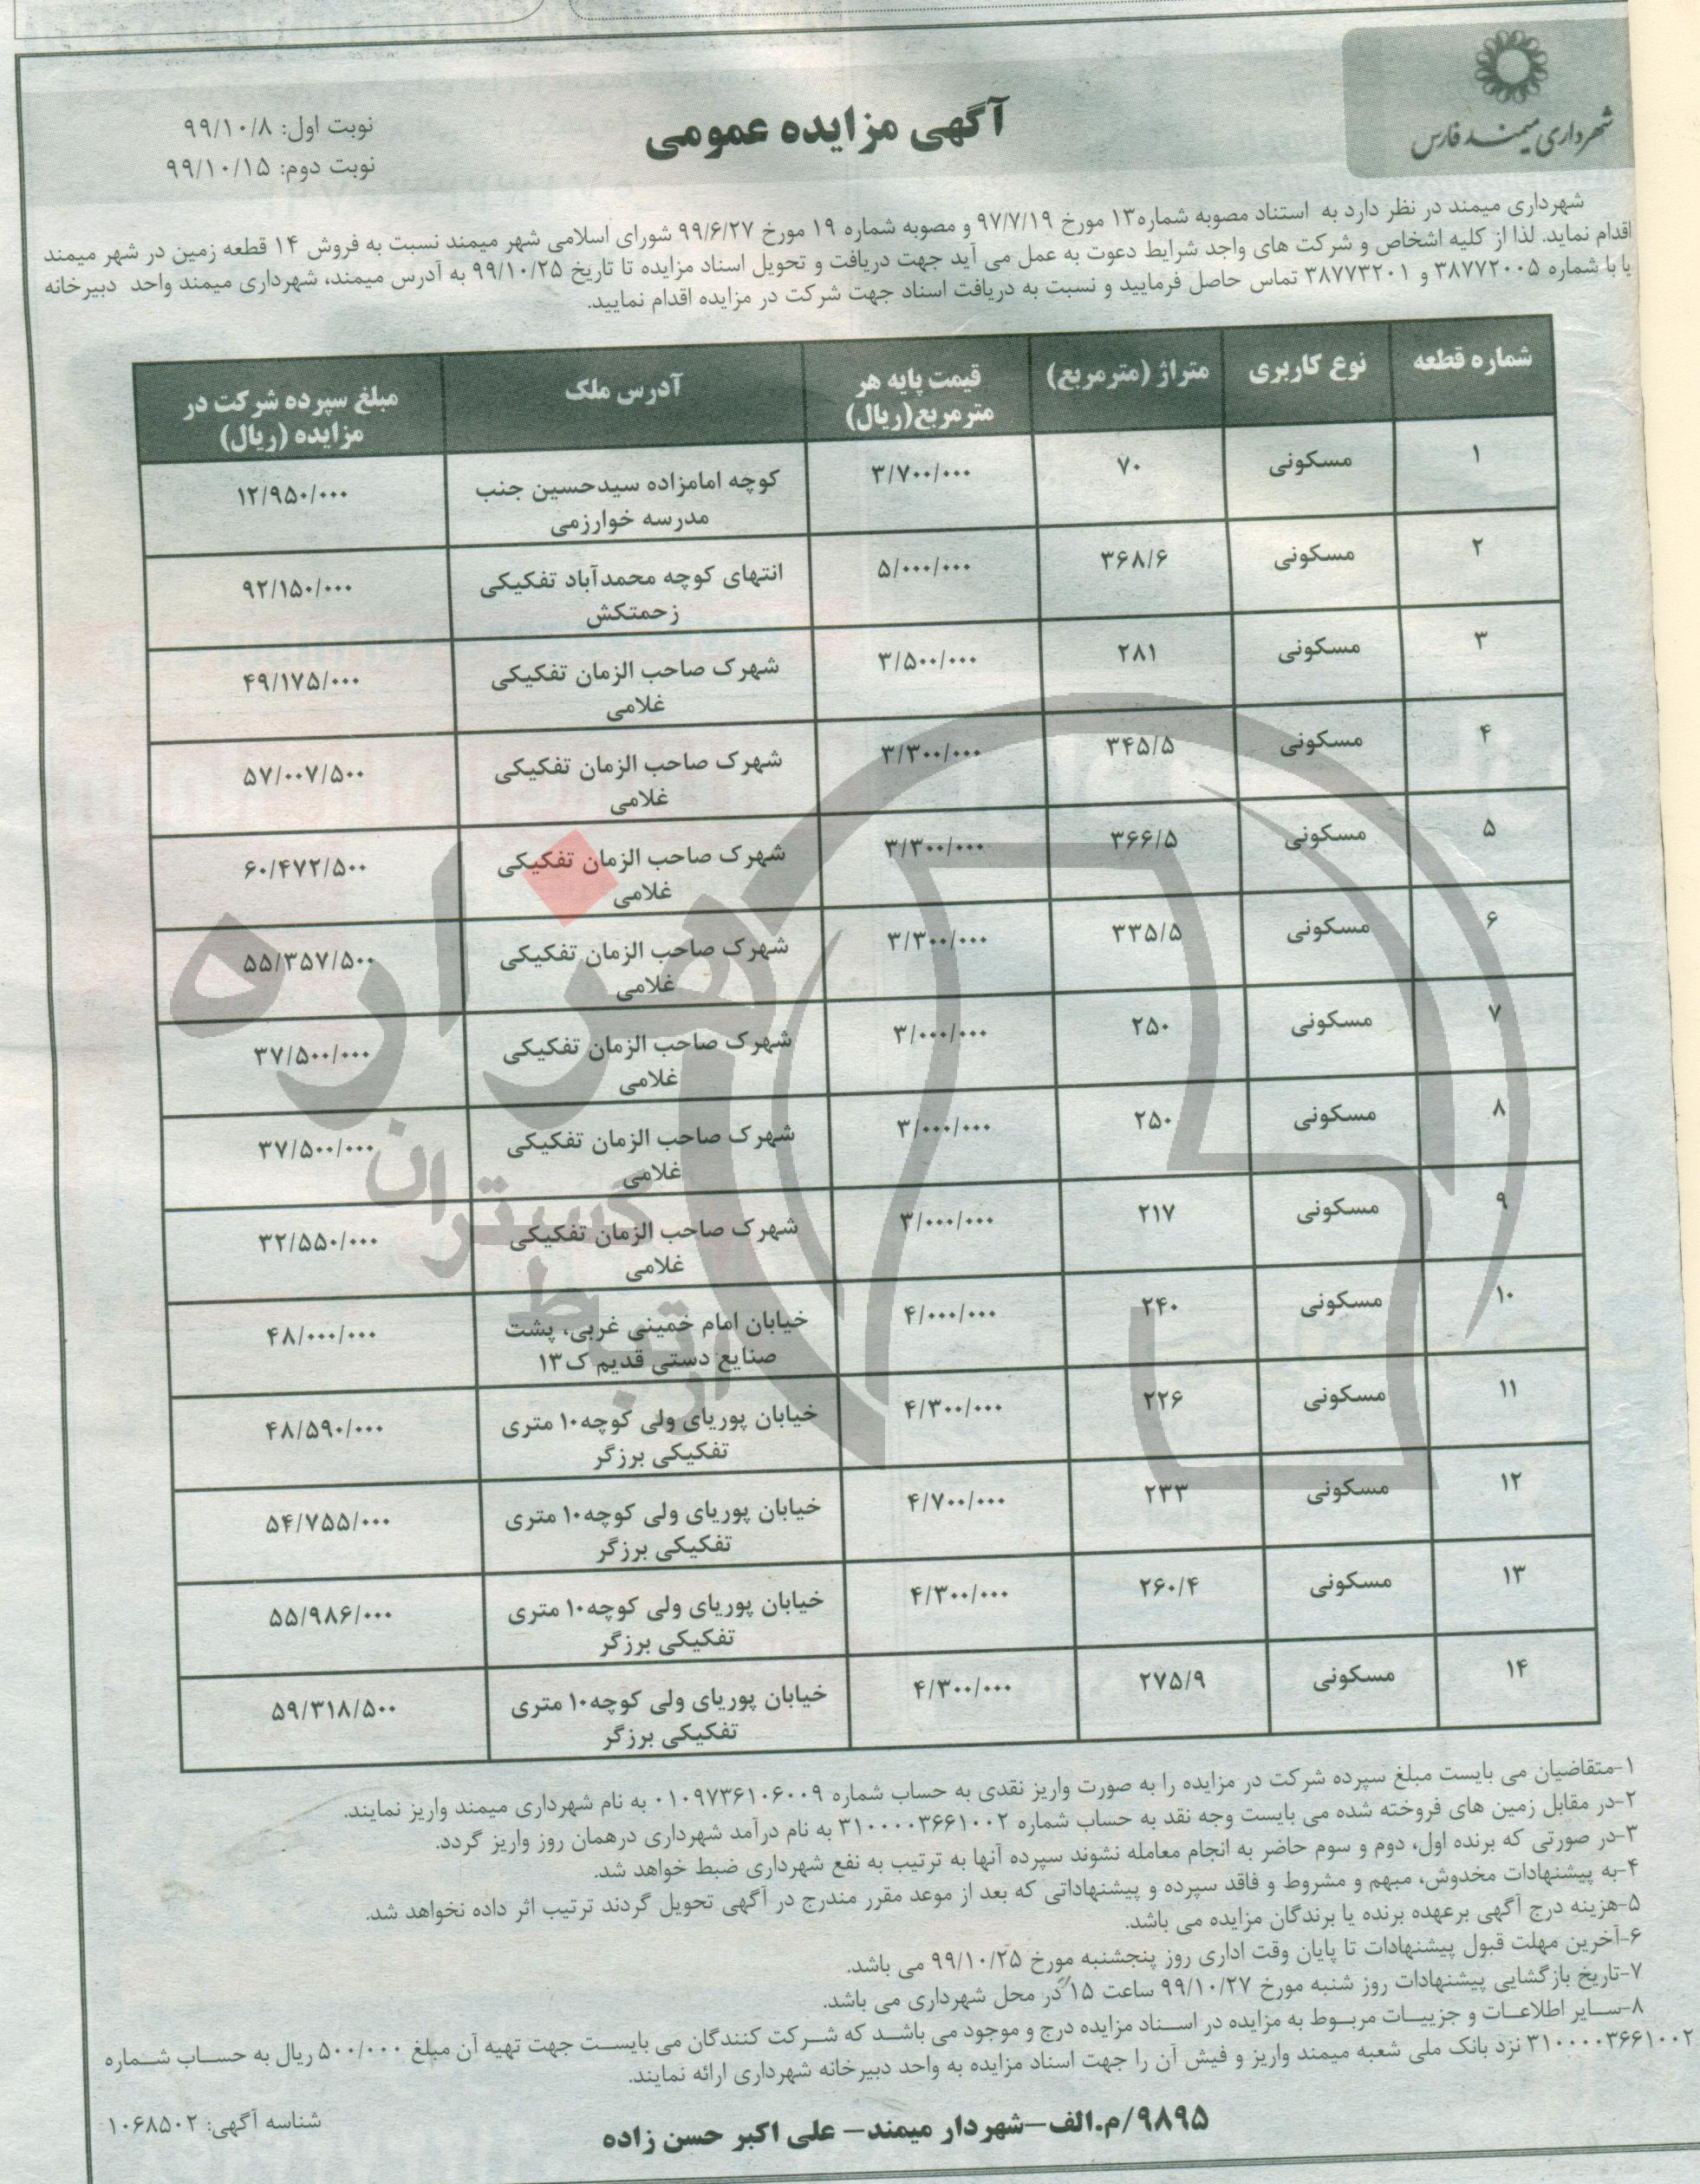 شهرداری میمند فارس
آگهی مزایده عمومی
نوبت اول: ۹۹/۱۰/۸
نوبت دوم: ۹۹/۱۰/۱۵
شهرداری میمند در نظر دارد به استناد مصوبه شماره۱۳ مورخ ۹۷/۷/۱۹ و مصوبه شماره ۱۹ مورخ ۹۹/۶/۲۷ شورای اسلامی شهر میمند نسبت به فروش ۱۴ قطعه زمین در شهر میمند
اقدام نماید. لذا از کلیه اشخاص و شرکت های واجد شرایط دعوت به عمل می آید جهت دریافت و تحویل اسناد مزایده تا تاریخ ۹۹/۱۰/۲۵ به آدرس میمند، شهرداری میمند واحد دبیرخانه
یا با شماره ۳۸۷۷۲۰۰۵ و ۳۸۷۷۳۲۰۱ تماس حاصل فرمایید و نسبت به دریافت اسناد جهت شرکت در مزایده اقدام نمایید.
شماره قطعه نوع کاربری متراژ (مترمربع) قیمت پایه هر مترمربع(ریال) آدرس ملک مبلغ سپرده شرکت در مزایده (ریال)
۱ مسکونی ۷۰ ۳/۷۰۰/۰۰۰ کوچه امامزاده سیدحسین جنب مدرسه خوارزمی ۱۲/۹۵۰/۰۰۰
۲ مسکونی ۳۶۸/۶ ۵/۰۰۰/۰۰۰ انتهای کوچه محمدآباد تفکیکی زحمتکش ۹۲/۱۵۰/۰۰۰
۳ مسکونی ۲۸۱ ۳/۵۰۰/۰۰۰ شهرک صاحب الزمان تفکیکی غلامی ۴۹/۱۷۵/۰۰۰
۴ مسکونی ۳۴۵/۵ ۳/۳۰۰/۰۰۰ شهرک صاحب الزمان تفکیکی غلامی ۵۷/۰۰۷/۵۰۰
۵ مسکونی ۳۶۶/۵ ۳/۳۰۰/۰۰۰ شهرک صاحب الزمان تفکیکی غلامی ۶۰/۴۷۲/۵۰۰
۶ مسکونی ۳۳۵/۵ ۳/۳۰۰/۰۰۰ شهرک صاحب الزمان تفکیکی غلامی ۵۵/۳۵۷/۵۰۰
۷ مسکونی ۲۵۰ ۳/۰۰۰/۰۰۰ شهرک صاحب الزمان تفکیکی غلامی ۳۷/۵۰۰/۰۰۰
۸ مسکونی ۲۵۰ ۳/۰۰۰/۰۰۰ شهرک صاحب الزمان تفکیکی غلامی ۳۷/۵۰۰/۰۰۰
۹ مسکونی ۲۱۷ ۳/۰۰۰/۰۰۰ شهرک صاحب الزمان تفکیکی غلامی ۳۲/۵۵۰/۰۰۰
۱۰ مسکونی ۲۴۰ ۴/۰۰۰/۰۰۰ خیابان امام خمینی غربی، پشت صنایع دستی قدیم ک۱۳ ۴۸/۰۰۰/۰۰۰
۱۱ مسکونی ۲۲۶ ۴/۳۰۰/۰۰۰ خیابان پوریای ولی کوچه۱۰ متری تفکیکی برزگر ۴۸/۵۹۰/۰۰۰
۱۲ مسکونی ۲۳۳ ۴/۷۰۰/۰۰۰ خیابان پوریای ولی کوچه۱۰ متری تفکیکی برزگر ۵۴/۷۵۵/۰۰۰
۱۳ مسکونی ۲۶۰/۴ ۴/۳۰۰/۰۰۰ خیابان پوریای ولی کوچه۱۰ متری تفکیکی برزگر ۵۵/۹۸۶/۰۰۰
۱۴ مسکونی ۲۷۵/۹ ۴/۳۰۰/۰۰۰ خیابان پوریای ولی کوچه۱۰ متری تفکیکی برزگر ۵۹/۳۱۸/۵۰۰
هزاره
ارتباط گستران
۱-متقاضیان می بایست مبلغ سپرده شرکت در مزایده را به صورت واریز نقدی به حساب شماره ۰۱۰۹۷۳۶۱۰۶۰۰۹ به نام شهرداری میمند واریز نمایند.
۲-در مقابل زمین های فروخته شده می بایست وجه نقد به حساب شماره ۳۱۰۰۰۰۳۶۶۱۰۰۲ به نام درآمد شهرداری درهمان روز واریز گردد.
۳-در صورتی که برنده اول، دوم و سوم حاضر به انجام معامله نشوند سپرده آنها به ترتیب به نفع شهرداری ضبط خواهد شد.
۴-به پیشنهادات مخدوش، مبهم و مشروط و فاقد سپرده و پیشنهاداتی که بعد از موعد مقرر مندرج در آگهی تحویل گردند ترتیب اثر داده نخواهد شد.
۵-هزینه درج آگهی برعهده برنده یا برندگان مزایده می باشد.
۶-آخرین مهلت قبول پیشنهادات تا پایان وقت اداری روز پنجشنبه مورخ ۹۹/۱۰/۲۵ می باشد.
۷-تاریخ بازگشایی پیشنهادات روز شنبه مورخ ۹۹/۱۰/۲۷ ساعت ۱۵ در محل شهرداری می باشد.
۸-سایر اطلاعات و جزییات مربوط به مزایده در اسناد مزایده درج و موجود می باشد که شرکت کنندگان می بایست جهت تهیه آن مبلغ ۵۰۰/۰۰۰ ریال به حساب شماره
۳۱۰۰۰۰۳۶۶۱۰۰۲ نزد بانک ملی شعبه میمند واریز و فیش آن را جهت اسناد مزایده به واحد دبیرخانه شهرداری ارائه نمایند.
۹۸۹۵/م.الف-شهردار میمند- علی اکبر حسن زاده
شناسه آگهی: ۱۰۶۸۵۰۲